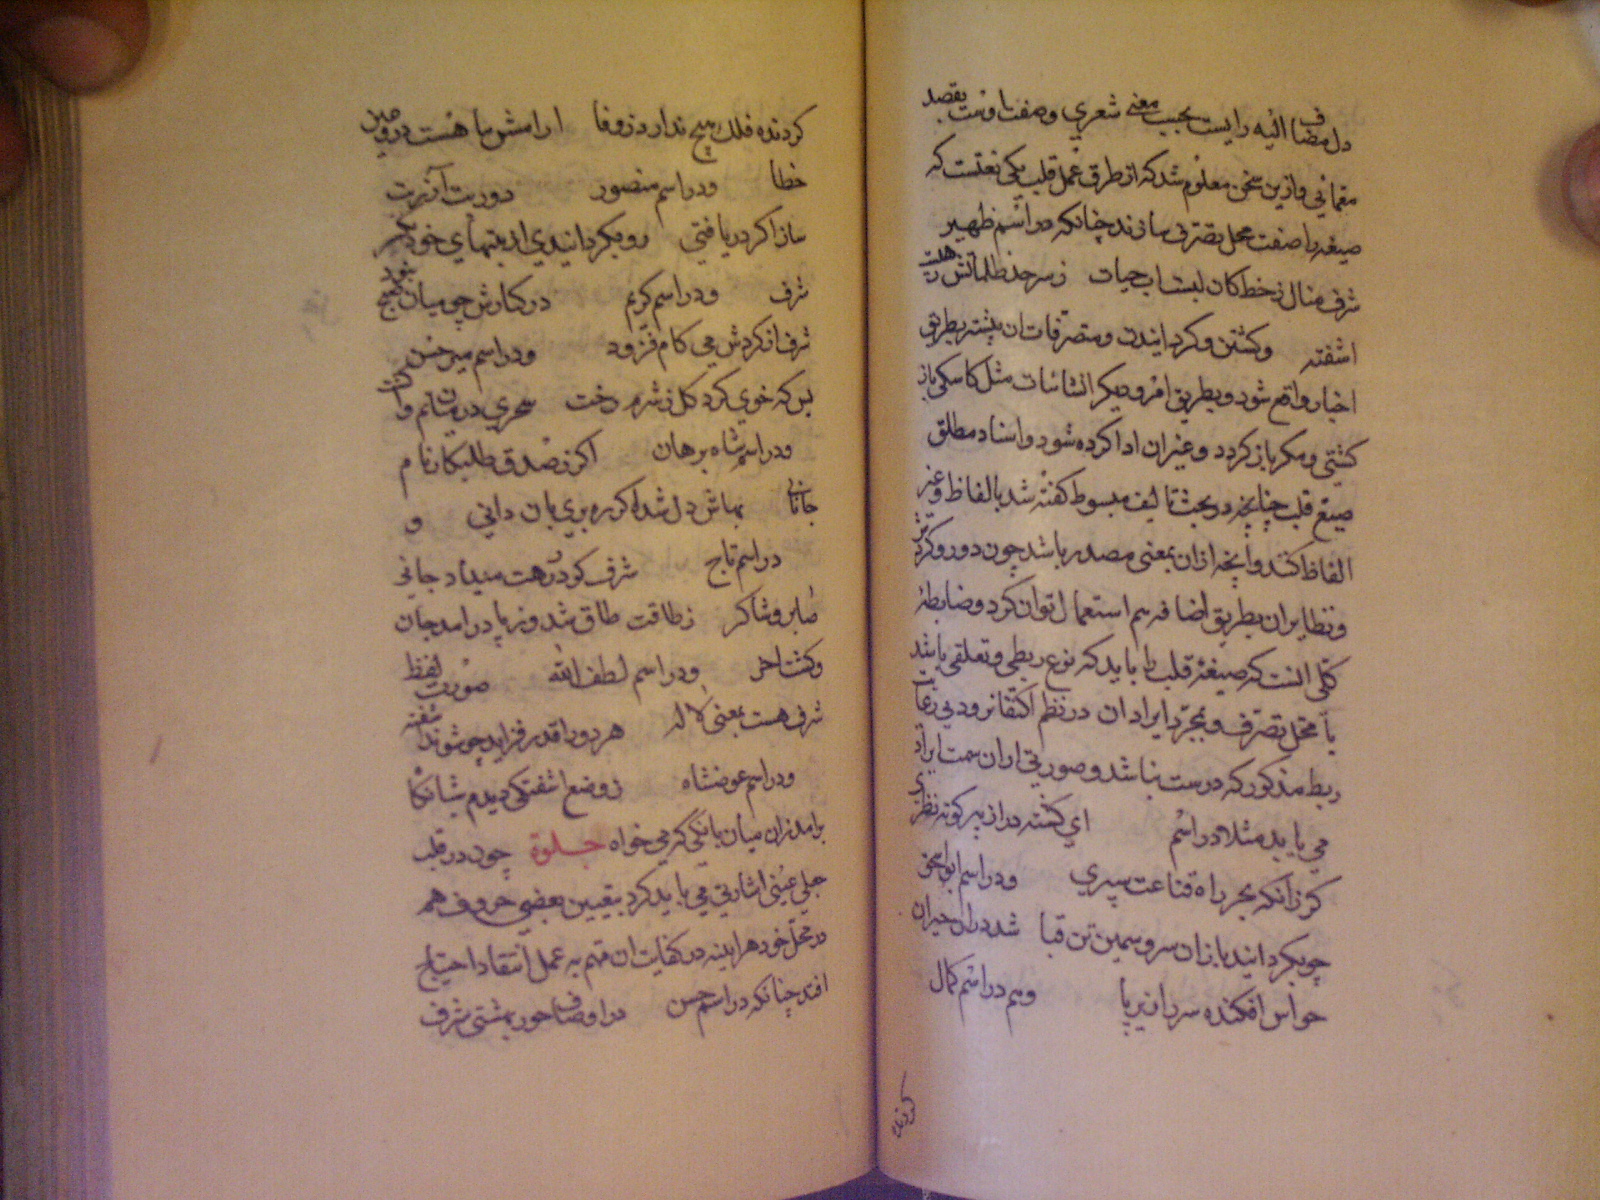 دل مضاف الیه رایست بحسب معنی شعری و صفت با ونت بقصد
معمائی و ازین سخن معلوم شد که از طرق عمل قلب یکی نعتست که
صیغه را صفت محل تصرف سازند چنانکه در اسم ظهیر
شرف منال ز خط کان لبست اب حیات ز سرحد ظلماتش
اشفته وکشتن و کردانیدن و متصرفات ان پیشتر بطریق
اخبار واقع شود و بطریق امر و دیکر انشائات مثل کاسکی باز
کشتی و مکر باز کردد و غیران ادا کرده شود و اسناد مطلق
صیغ قلب چنانچه در بحث تالیف مبسوط کفته شد بالفاظ و غیر
الفاظ کنند وانچه ازان بمعنی مصدر باشد چون دور و کرد
و نظایران بطریق اضافه هم استعمال توان کرد و ضابطه
کلی انست که صیغه قلب را باید که نوع ربطی و تعلقی باشد
با محل تصرف و بمجرد ایراد ان در نظم اکتفا نرود بی رعایت
ربط مذکور که درست نباشد و صورتی ازان سمت ایراد
می یابد مثلا در اسم ای کشته دراز پیر کوته نظری
کر زانکه بجر راه قناعت سپری ودر اسم
چو بکردانید بازان سرو سیمین تن قبا شد دران حیران
حواس افکنده سر در زیر پا وهم در اسم کمال
کردنده
کردنده فلک هیچ ندارد ز وفا ارامش ما هست
خطا ودر اسم منصور دورت
ساز اکر دریافتی رو بکردانیدی از بتهای خود
شرف ودر اسم کریم در کنارش چو میان
شرف از کردش می کام فزود ودر اسم میرحسن
بس که خوی کرد کل ز شرم رخت سحری در میان
ودر اسم شاه برهان اکر ز صدق طلبکار نام
جانانی بهاش دل شده اکر ره بری بان دانی و
در اسم تاج شرف کو در رهت میداد جانی
صابر و شاکر ز طاقت طاق شد وز پا در امد جان
وکشت اخر ودر اسم لطف الله صورت لفظ
شرف هست بمعنی کاله هر دو را قدر فزاید چو شوند اشفته
ودر اسم عوضشاه ز وضع اشفتکی دیدم
برامد زان میان بانکی که می خواه جلوة چون در قلب
جعلی عینی اشارتی می باید کرد بتعیین بعضی حروف هم
در محل خود هراینه در کفایت ان مهم به عمل انتقاد احتیاج
افتد چنانکه در اسم حسن در اوصاف حور بهشتی شرف